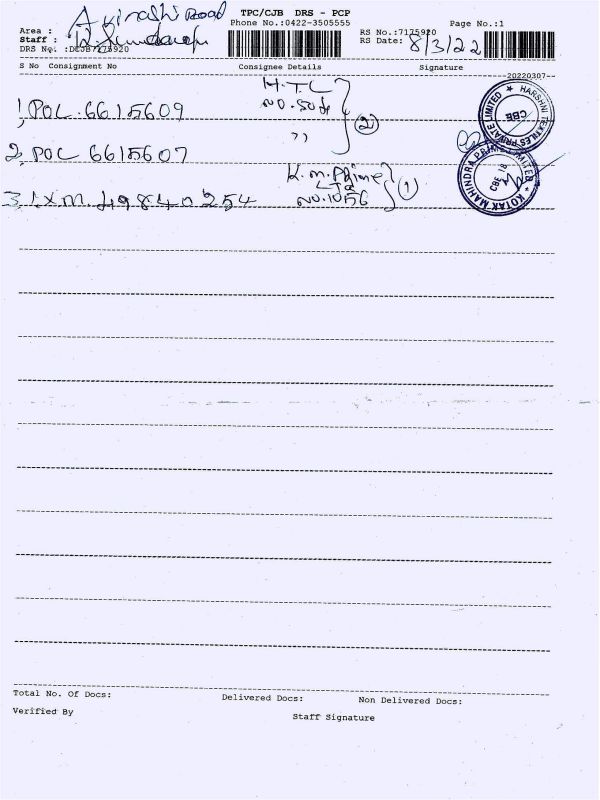 TPC/CJB DRS - PCP
Phone No.:0422-3505555
Page No.:1
Area : Road
Staff :
RS No.:7175920
RS Date: 8/3/22
DRS No. :DCJB7175920
S No Consignment No Consignee Details Signature
20220307
H.T.L
1, POL.6615609 NO.
,, (2)
2, POL 6615607
K.M.Prime
LTD (1)
3, 49840254 NO.1056
HARSHNI TEXTILES PRIVATE LIMITED ★ CBE
KOTAK MAHINDRA PRIMES LIMITED ★ CBE 18
Total No. Of Docs: Delivered Docs: Non Delivered Docs:
Verified By Staff Signature